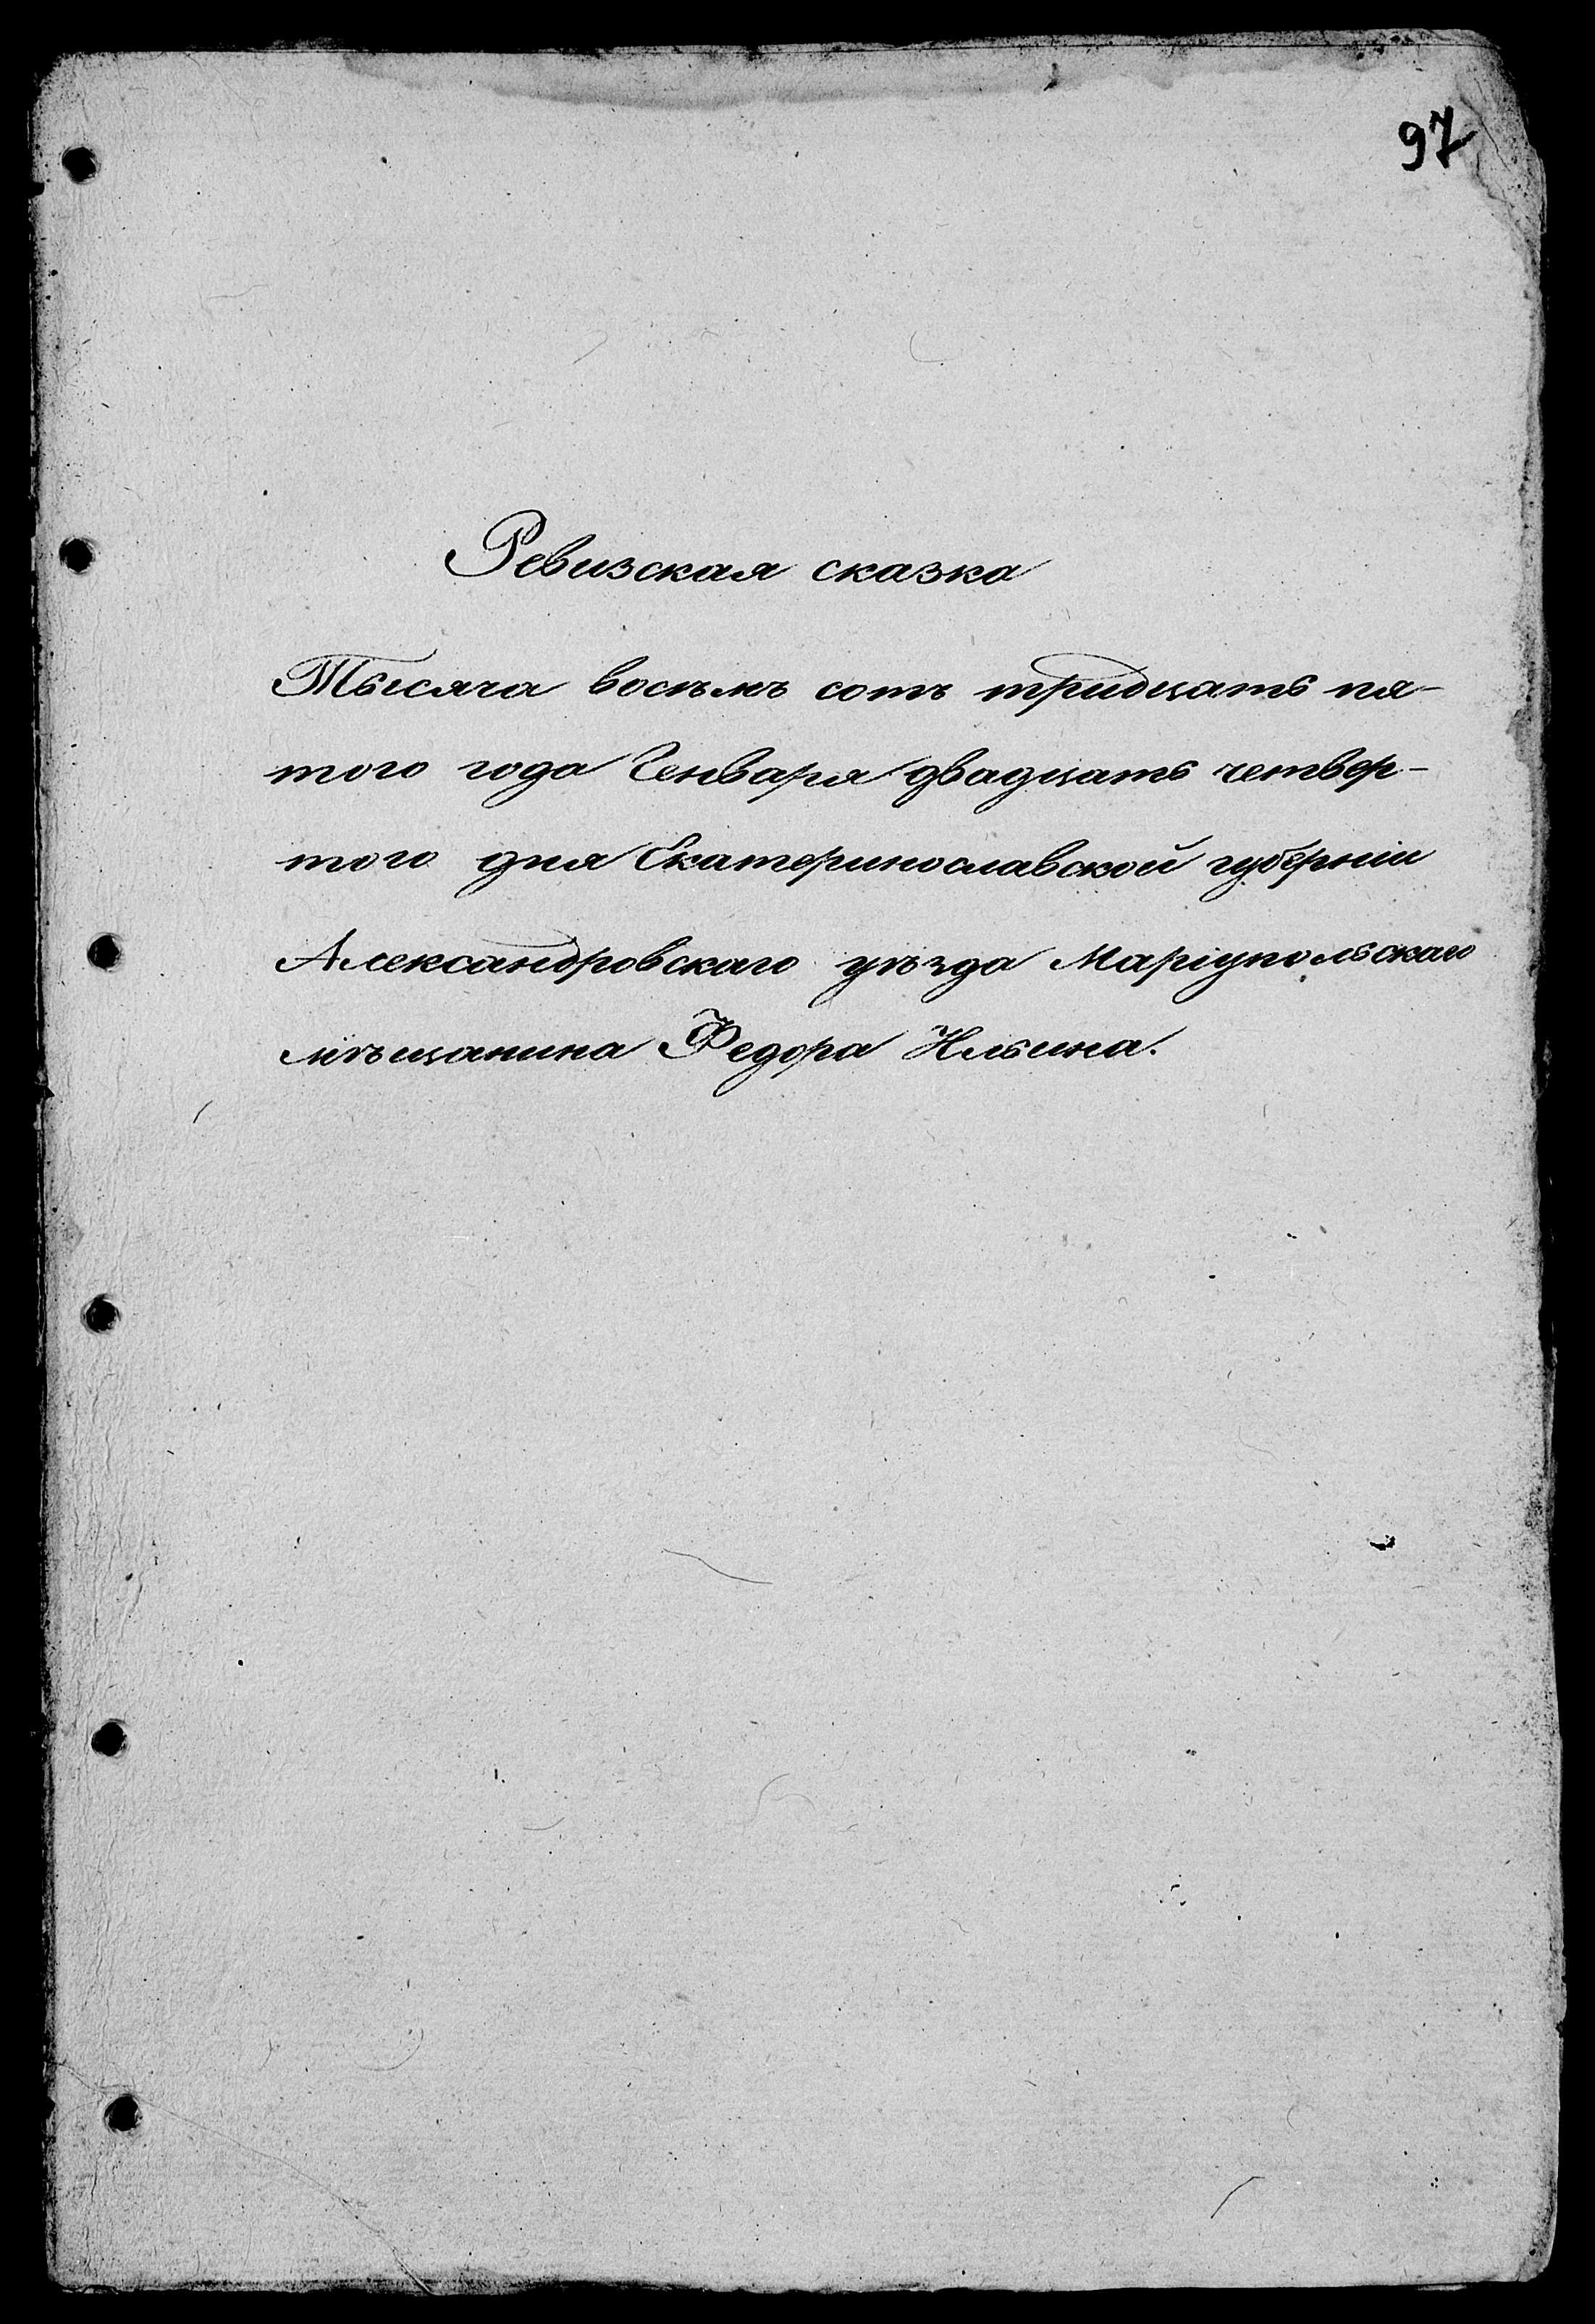 97
Ревизская сказка
Тысяча восъмъ сотъ тридцать пя-
того года Генваря двадцать четвер-
того дня Екатеринославской губерніи
Александровскаго уѣзда Маріупольскаго
мѣщанина Федора Ильина.